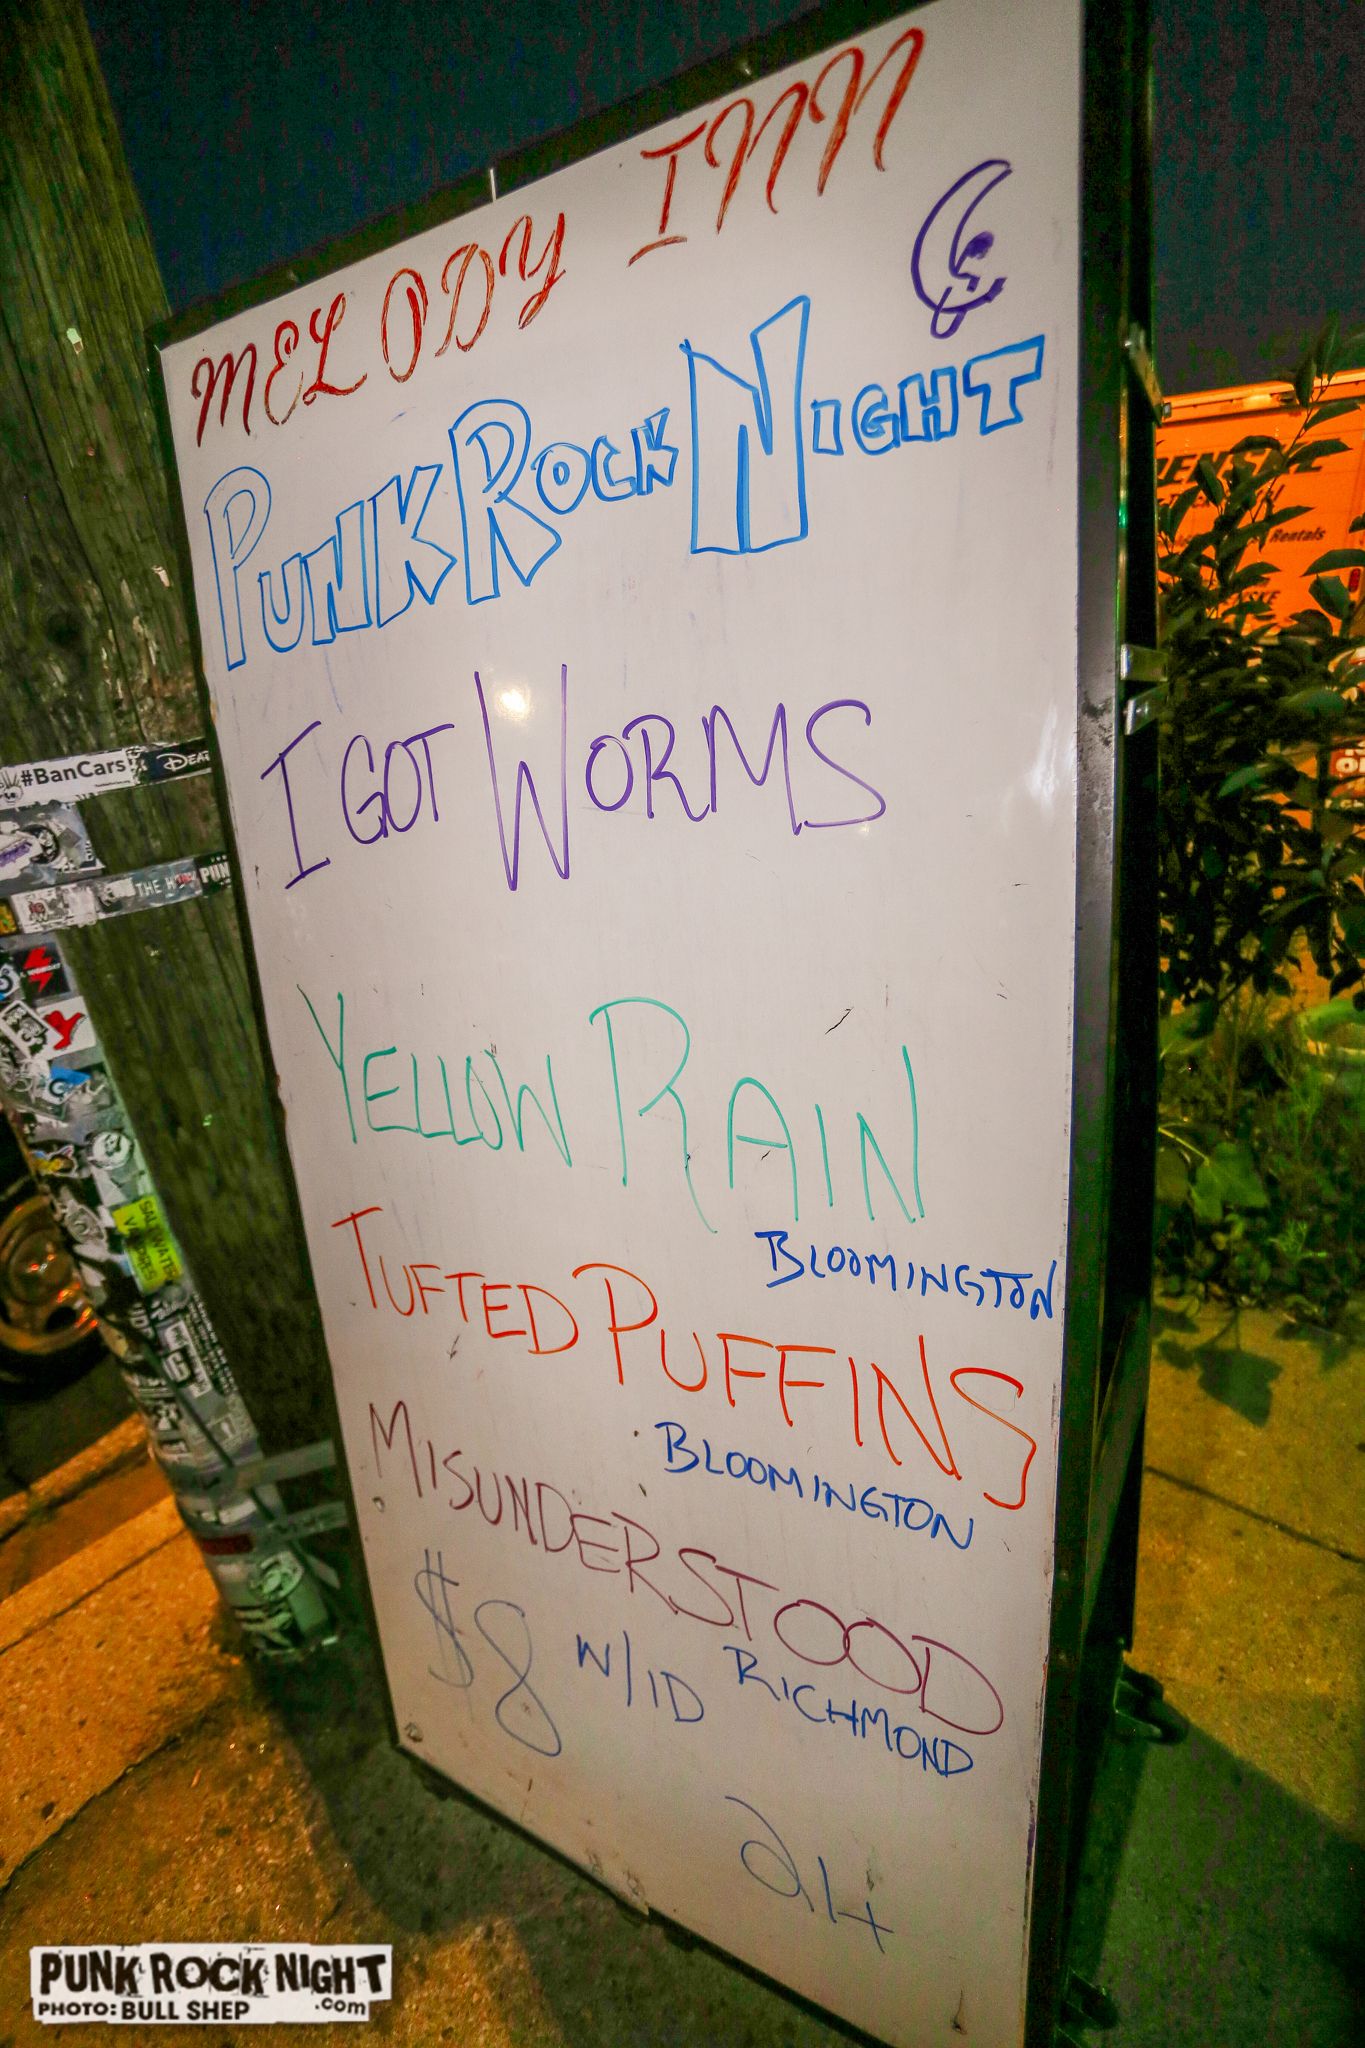 MELODY INN
PUNK ROCK NIGHT
I GOT WORMS
YELLOW RAIN
BLOOMINGTON
TUFTED PUFFINS
BLOOMINGTON
MISUNDERSTOOD
RICHMOND
$8 W/ID
21+
#BanCars
THE
PUN
SALTWATER
VAMPIRES
Rentals
PUNK ROCK NIGHT
.com
PHOTO: BULL SHEP